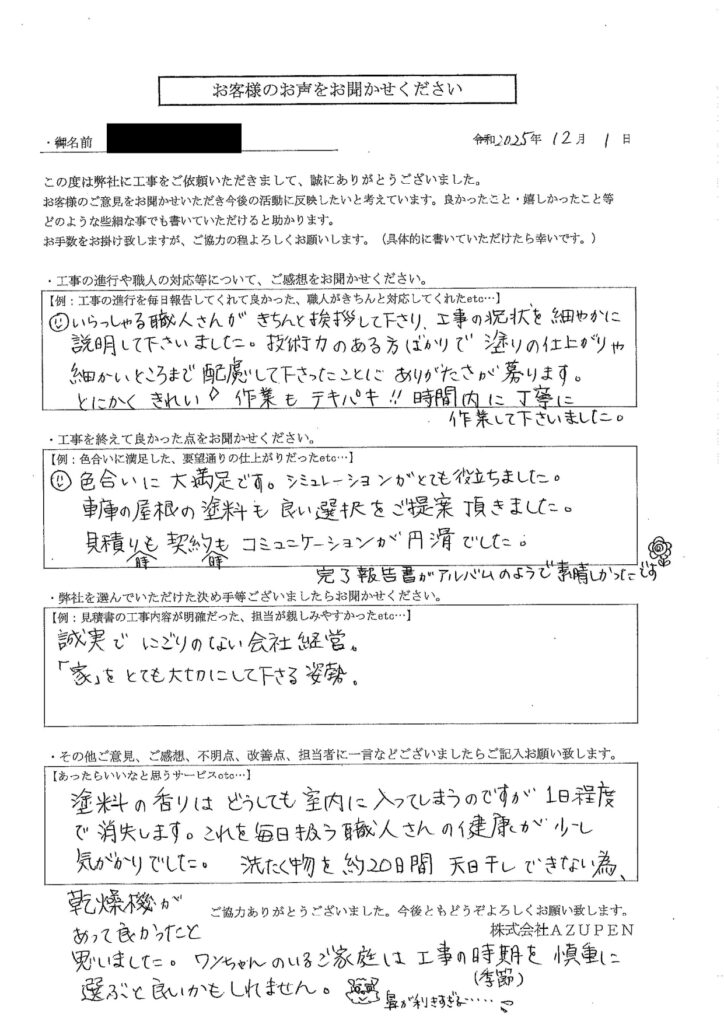 お客様のお声をお聞かせください
・御名前
令和2025年 12月 1日
この度は弊社に工事をご依頼いただきまして、誠にありがとうございました。
お客様のご意見をお聞かせいただき今後の活動に反映したいと考えています。良かったこと・嬉しかったこと等
どのような些細な事でも書いていただけると助かります。
お手数をお掛け致しますが、ご協力の程よろしくお願いします。（具体的に書いていただけたら幸いです。）
・工事の進行や職人の対応等について、ご感想をお聞かせください。
【例：工事の進行を毎日報告してくれて良かった、職人がきちんと対応してくれたetc…】
いらっしゃる職人さんが きちんと挨拶して下さり、工事の況状を細やかに
説明して下さいました。技術力のある方ばかりで 塗りの仕上がりや
細かいところまで配慮して下さったことに ありがたさが募ります。
とにかく きれい 作業も テキパキ!! 時間内に 丁寧に
作業して下さいました。
・工事を終えて良かった点をお聞かせください。
【例：色合いに満足した、要望通りの仕上がりだったetc…】
色合いに 大満足です。シミュレーションがとても役立ちました。
車庫の屋根の塗料も 良い選択をご提案 頂きました。
見積り時も 契約時も コミュニケーションが円滑でした。
完了報告書がアルバムのようで素晴しかったです
・弊社を選んでいただけた決め手等ございましたらお聞かせください。
【例：見積書の工事内容が明確だった、担当が親しみやすかったetc…】
誠実で にごりのない会社経営。
「家」を とても大切にして下さる 姿勢。
・その他ご意見、ご感想、不明点、改善点、担当者に一言などございましたらご記入お願い致します。
【あったらいいなと思うサービスetc…】
塗料の香りは どうしても 室内に入ってしまうのですが 1日程度
で消失します。これを毎日扱う職人さんの健康が 少し
気がかりでした。 洗たく物を約20日間 天日干しできない為、
乾燥機が
あって良かったと
思いました。ワンちゃんのいるご家庭は 工事の時期を 慎重に
(季節)
選ぶと良いかもしれません。
鼻が利きすぎる……
ご協力ありがとうございました。今後ともどうぞよろしくお願い致します。
株式会社AZUPEN